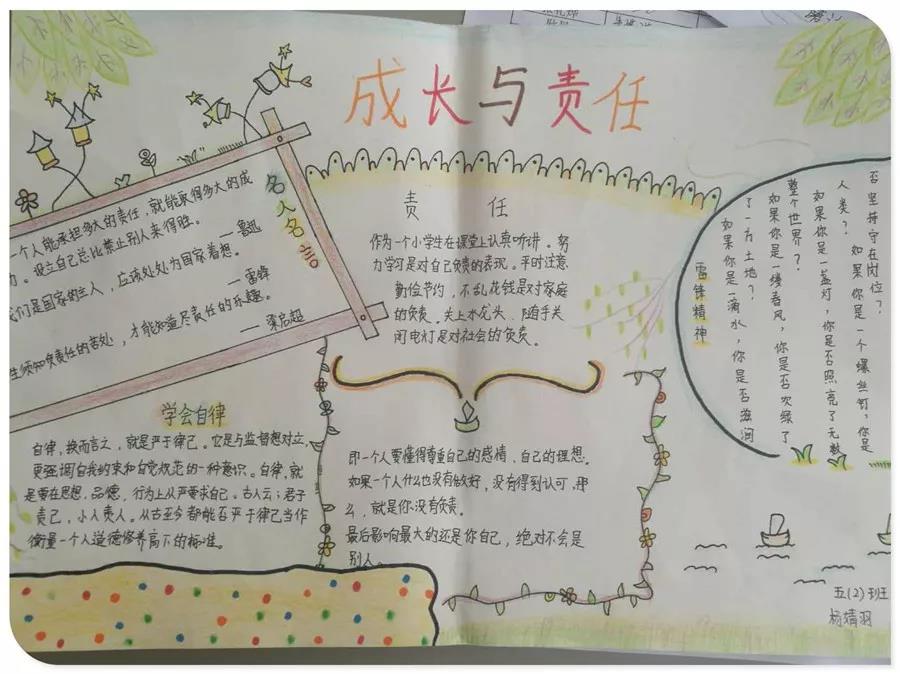 成长与责任
名人名言
一个人能承担多大的责任，就能取得多大的成
功。设立自己总比禁止别人来得胜。
—鲁迅
我们是国家的主人，应该处处为国家着想。
—雷锋
生须知负责任的苦处，才能知道尽责任的乐趣。
—梁启超
责 任
作为一个小学生在课堂上认真听讲。努
力学习是对自己负责的表现。平时注意
勤俭节约，不乱花钱是对家庭
的负责。关上水龙头、随手关
闭电灯是对社会的负责。
雷锋精神
如果你是一滴水，你是否滋润
了一方土地？
如果你是一缕春风，你是否吹绿了
整个世界？
如果你是一盏灯，你是否照亮了无数
人类？ 如果你是一个螺丝钉，你是
否坚持守在岗位？
学会自律
自律，换而言之，就是严于律己。它是与监督想对立，
更强调自我约束和自觉规范的一种意识。自律，就
是要在思想，品德，行为上从严要求自己。古人云；君子
责己，小人责人。从古至今都能否严于律己当作
衡量一个人道德修养高下的标准。
即一个人要懂得尊重自己的感情、自己的理想。
如果一个人什么也没有做好，没有得到认可，那
么，就是你没有负责。
最后影响最大的还是你自己，绝对不会是
别人。
五(2)班
杨婧羽